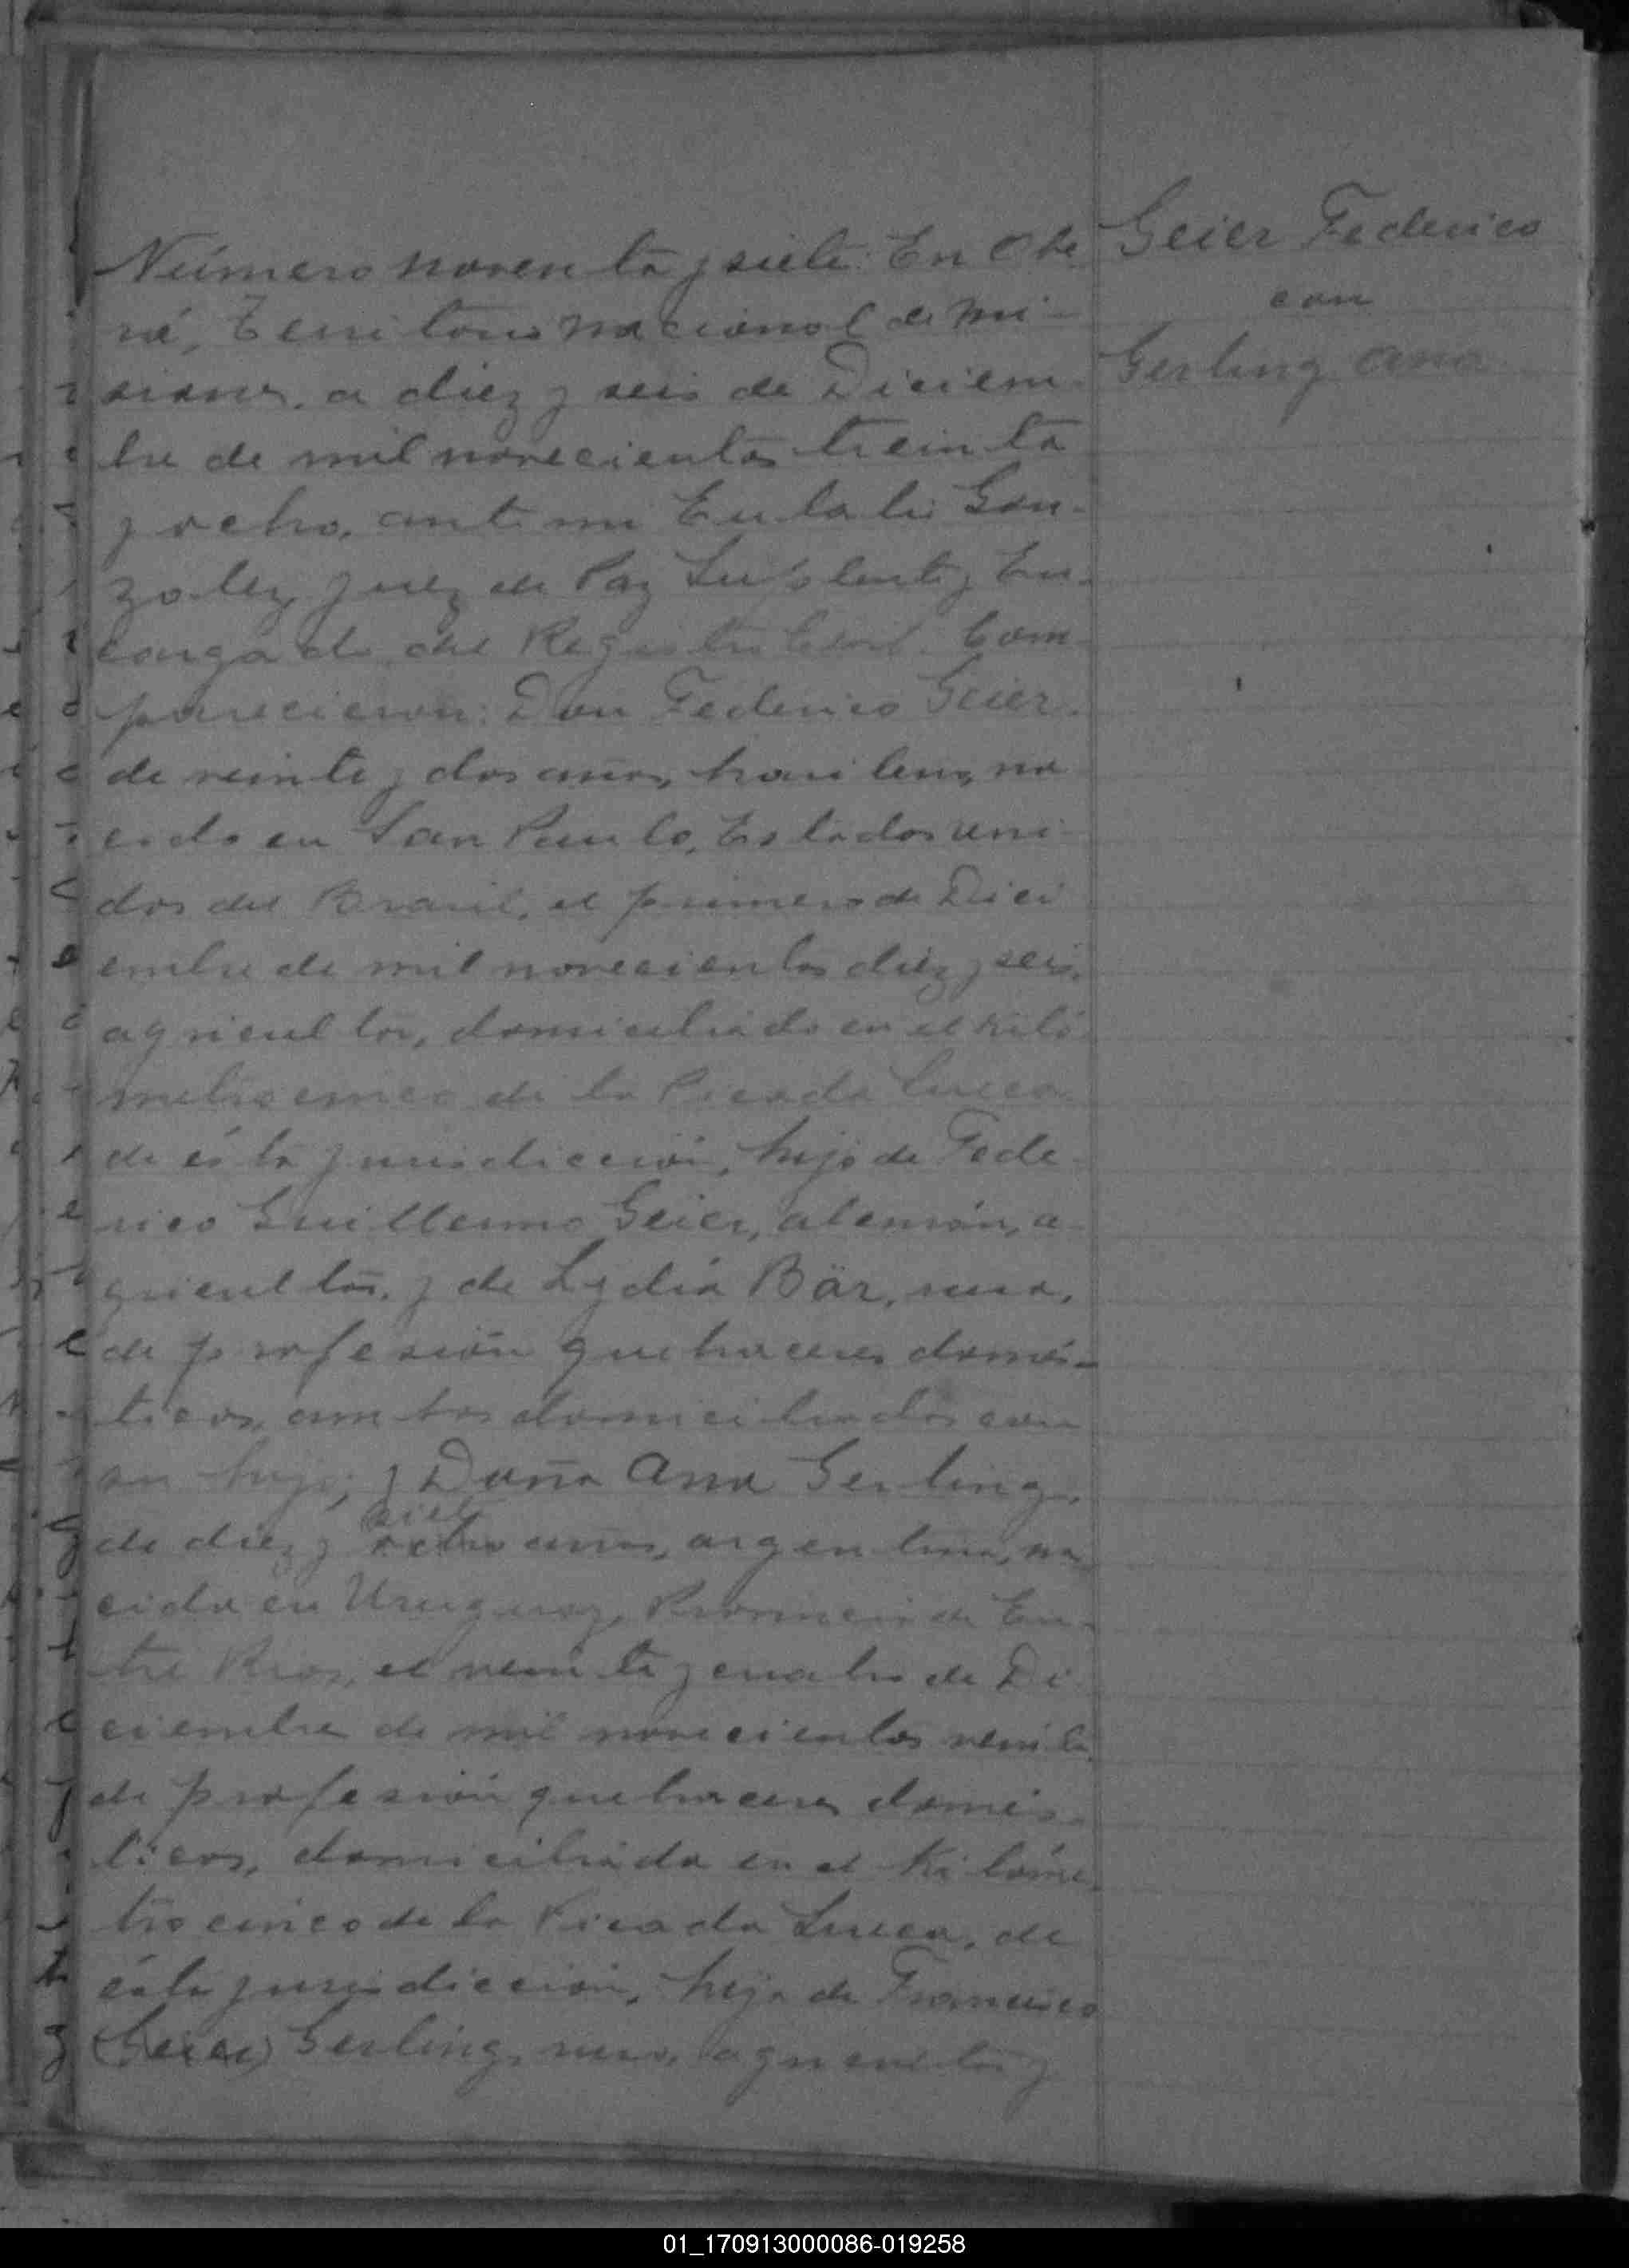 Geier Federico
con
Gerling Ana
Número noventa y siete. En Obe
rá, Territorio Nacional de Mi-
siones, a diez y seis de Diciem-
bre de mil novecientos treinta
y ocho, ante mi Eulalio Gon-
zalez, Juez de Paz Suplente y En-
cargado del Registro Civil. Com-
parecieron: Don Federico Geier,
de veinte y dos años, brasilero, na
cido en San Paulo, Estados uni-
dos del Brasil, el primero de Dici
embre de mil novecientos diez y seis,
agricultor, domiciliado en el kiló
metro cinco de la Picada Sueca,
de ésta jurisdicción, hijo de Fede-
rico Guillermo Geier, alemán, a-
gricultor, y de Lydia Bär, rusa,
de profesión quehaceres domés-
ticos, ambos domiciliados con
su hijo; y Doña Ana Gerling,
siete
de diez y ocho años, argentina, na
cida en Uruguay, Provincia de En-
tre Rios, el veinte y cuatro de Di
ciembre de mil novecientos veinte,
de profesión quehaceres domés-
ticos, domiciliada en el Kilóme-
tro cinco de la Picada Sueca, de
ésta jurisdicción, hija de Francisco
(Geier) Gerling, ruso, agricultor y
01_170913000086-019258